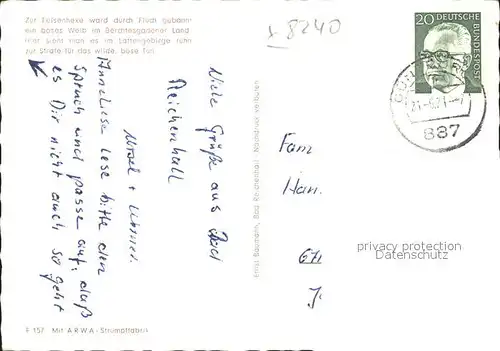 Zur Felsenhexe ward durch Fluch gebannt
ein böses Weib im Berchtesgadener Land
Hier sieht man es im Lattengebirge ruhn
zur Strafe für das wilde, böse Tun!
8240
20 DEUTSCHE BUNDESPOST
887
Viele Grüße aus Bad
Reichenhall
Anneliese lese bitte den
Spruch und passe auf, daß
es Dir nicht auch so geht
Ernst Baumann, Bad Reichenhall · Nachdruck verboten
Fam
Han
privacy protection
Datenschutz
R 157 Mit ARWA-Strumpffabrik